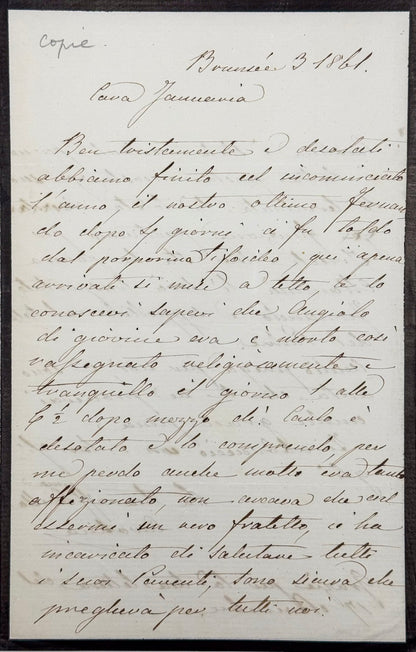 copie
Brunsée 3 1861.
Cara Januaria
Ben tristamente e desolati
abbiamo finito ed incominciato
l'anno, il nostro ottimo Fernan
do dopo 4 giorni ci fu tolto
dal porporina Tifoideo qui apena
arrivati si mise a letto, tu lo
conoscevi sapevi che Angiolo
di giovine era è morto così
rassegnato religiosamente e
tranquillo il giorno 1 alle
6½ dopo mezzo dì. Carlo è
desolato e lo comprendo, per
me perdo anche molto era tanto
affezionato, non aveva che
essermi un vero fratello, ci ha
incaricato di salutare tutti
i suoi Parenti, sono sicura che
pregherà per tutti noi.